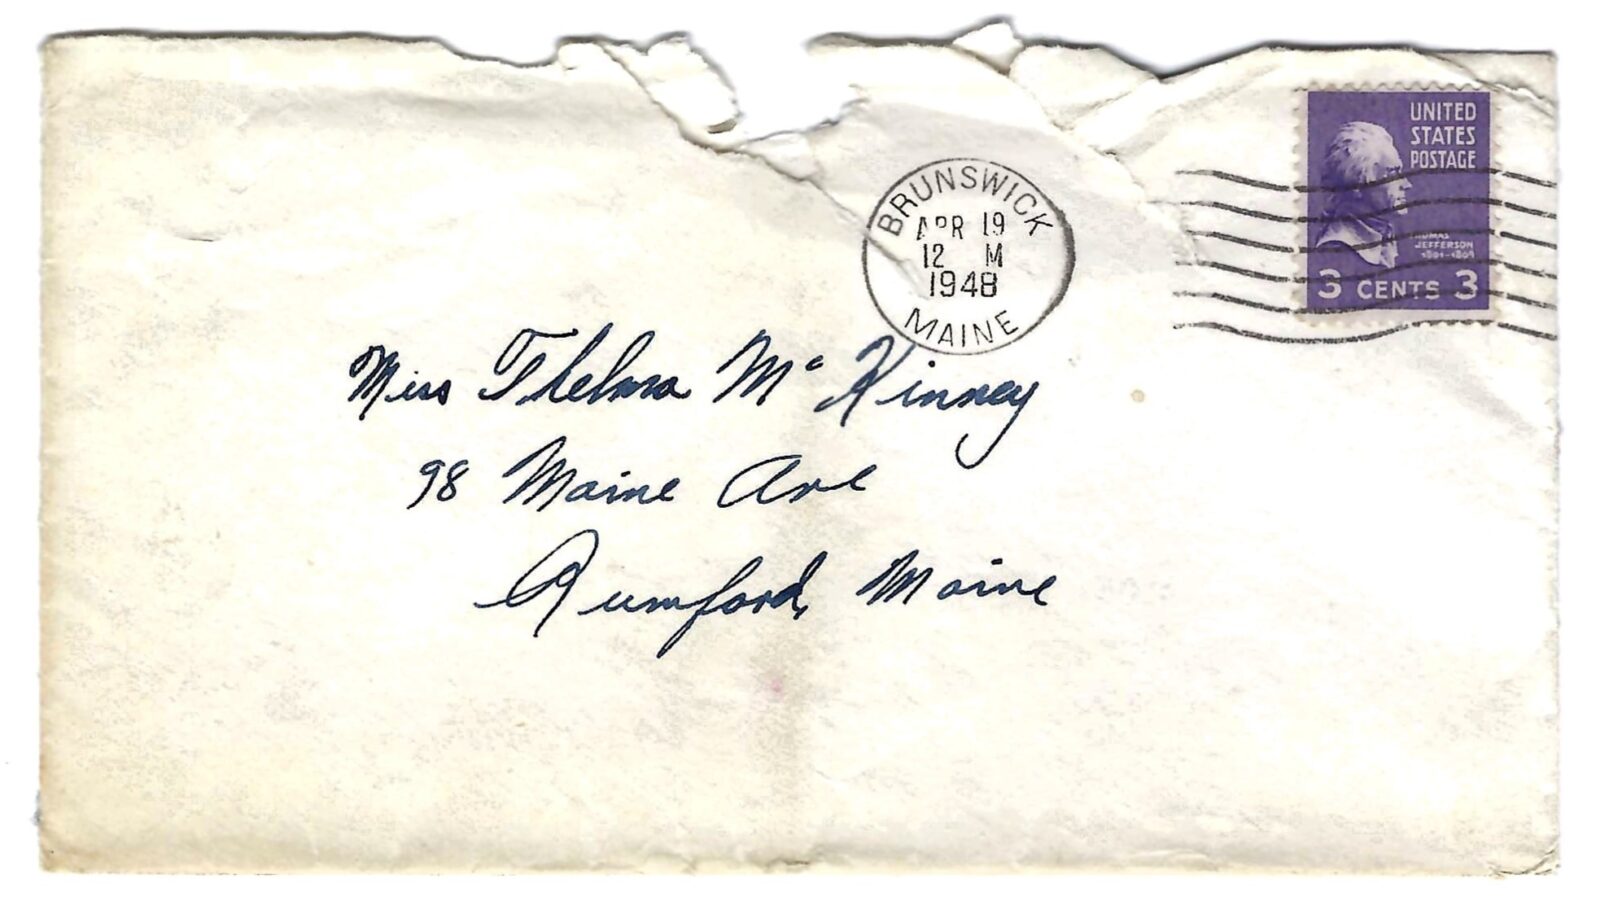 UNITED
STATES
POSTAGE
THOMAS
JEFFERSON
1801-1809
3 CENTS 3
BRUNSWICK
APR 19
12 M
1948
MAINE
Miss Thelma McKinney
98 Maine Ave
Rumford, Maine